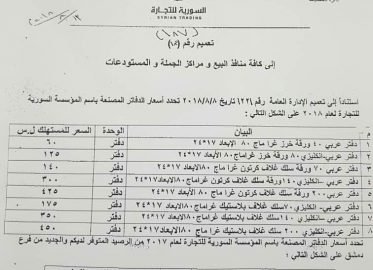 السورية للتجارة
SYRIAN TRADING
(١٨٧)
تعميم رقم (١٥)
إلى كافة منافذ البيع و مراكز الجملة و المستودعات
استناداً إلى تعميم الإدارة العامة رقم /٢٢٤/ تاريخ ٢٠١٨/٨/٨ تحدد أسعار الدفاتر المصنعة باسم المؤسسة السورية
للتجارة لعام ٢٠١٨ على الشكل التالي :
م البيان الوحدة السعر للمستهلك ل.س
١ دفتر عربي ٤٠ ورقة خرز غراماج ٨٠ الأبعاد ١٧*٢٤ دفتر ٦٠
٢ دفتر عربي-انكليزي ٨٠ ورقة خرز غراماج ٨٠ الأبعاد ١٧*٢٤ دفتر ١٢٥
٣ دفتر عربي ٧٠ ورقة سلك غلاف كرتون غراماج ٨٠ الأبعاد ١٧*٢٤ دفتر ١٤٠
٤ دفتر عربي-انكليزي ١٤٠ ورقة سلك غلاف كرتون غراماج ٨٠ الأبعاد ١٧*٢٤ دفتر ٣٠٠
٥ دفتر عربي ٢٠٠ ورقة سلك غلاف كرتون غراماج ٨٠ الأبعاد ١٧*٢٤ دفتر ٤٢٥
٦ دفتر عربي-انكليزي ٧٠ سلك غلاف بلاستيك غراماج ٨٠ الأبعاد ١٧*٢٤ دفتر ١٧٥
٧ دفتر عربي-انكليزي ١٤٠ سلك غلاف بلاستيك غراماج ٨٠ الأبعاد ١٧*٢٤ دفتر ٣٥٠
٨ دفتر عربي-انكليزي ٢٠٠ سلك غلاف بلاستيك غراماج ٨٠ الأبعاد ١٧*٢٤ دفتر ٤٥٠
تحدد أسعار الدفاتر المصنعة باسم المؤسسة السورية للتجارة لعام ٢٠١٧ من الرصيد المتوفر لديكم والجديد من فرع
دمشق على الشكل التالي :